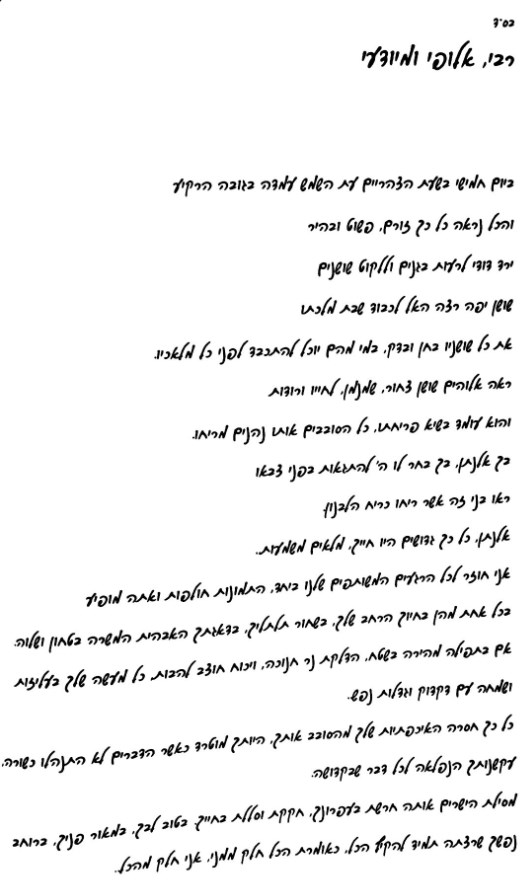 בס"ד
רבי, אלופי ומיודעי
ביום חמישי בשעת הצהריים עת השמש עמדה בגובה הרקיע
והכל נראה כל כך זורם, פשוט ובהיר
ירד דודי לרעות בגנים וללקוט שושנים
שושן יפה רצה האל לכבוד שבת מלכתו
את כל שושניו בחן ובדק, במי מהם יוכל להתכבד לפני כל מלאכיו.
ראה אלוהים שושן צחור, שמנמן, לחייו ורודות
והוא עומד בשיא פריחתו, כל הסובבים אותו נהנים מריחו.
בך אלנתן, בך בחר לו ה' להתגאות בפני צבאו
ראו בני זה אשר ריחו כריח הלבנון
אלנתן, כל כך גדושים היו חייך, מלאים משמעות.
אני חוזר לכל הרגעים המשותפים שלנו ביחד, התמונות חולפות ואתה מופיע
בכל אחת מהן בחיוך הרחב שלך, בשחור תלתליך, בדאגתך האבהית המשרה בטחון ושלוה.
אם בתפילה מהירה בשטח, הדלקת נר חנוכה, ויכוח חוצב להבות, כל מעשה שלך בעליזות
ושמחה עם דקדוק וגדלות נפש.
כל כך חסרה האיכפתיות שלך מהסובב אותך, היותך מוטרד כאשר הדברים לא התנהלו כשורה,
עקשנותך הנפלאה לכל דבר שבקדושה.
מסילת הישרים אותה חרשת בעפרונך, חקקת וסללת בחייך. בטוב לבך, במאור פניך, ברוחב
נפשך שרצתה תמיד להקיף הכל, כאומרת הכל חלק ממני, אני חלק מהכל.